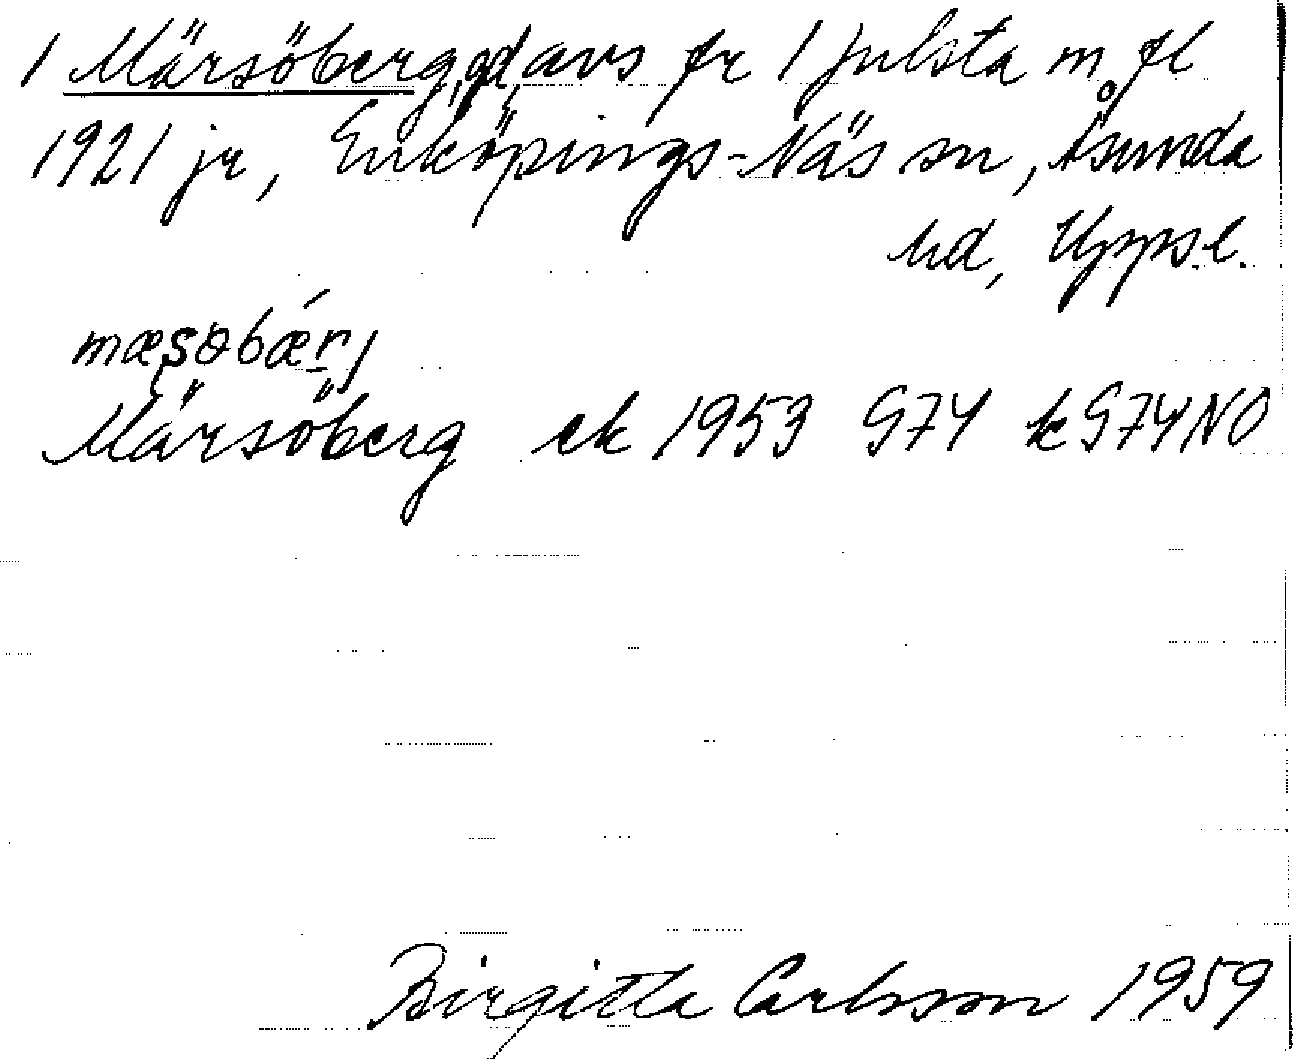 1 Märsöberg, gd, avs fr 1 Julsta m fl
1921 jr, Enköpings-Näs sn, Åsunda
hd, Uppsl.
Märsöberg ek 1953 G74 k G74NO
Birgitta Carlsson 1959